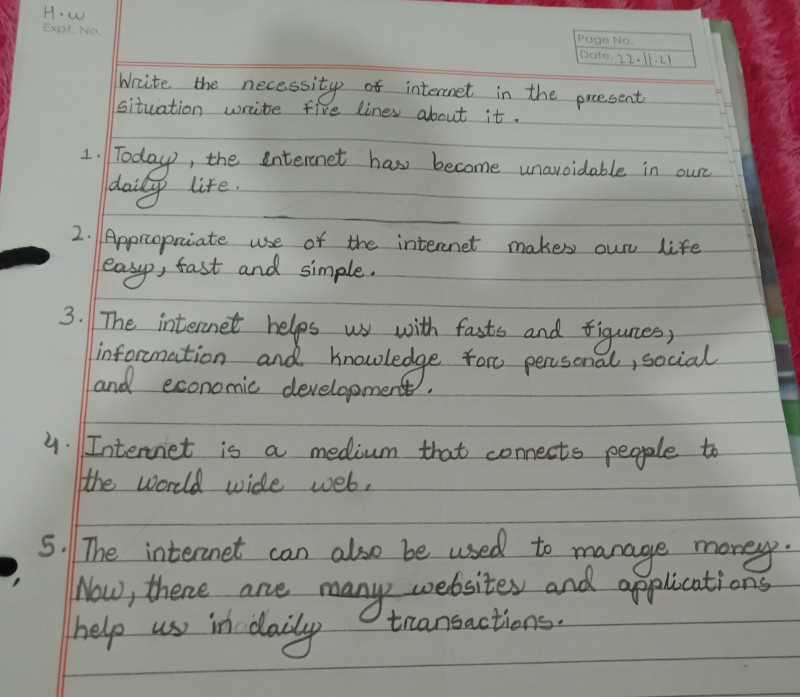 H.W
Expt. No.
Page No.
Date. 22.11.21
Write the necessity of internet in the present
situation write five lines about it.
1. Today, the Internet has become unavoidable in our
daily life.
2. Appropriate use of the internet makes our life
easy, fast and simple.
3. The internet helps us with fasts and figures,
information and knowledge for personal, social
and economic development.
4. Internet is a medium that connects people to
the world wide web.
5. The internet can also be used to manage money.
Now, there are many websites and applications
help us in daily transactions.